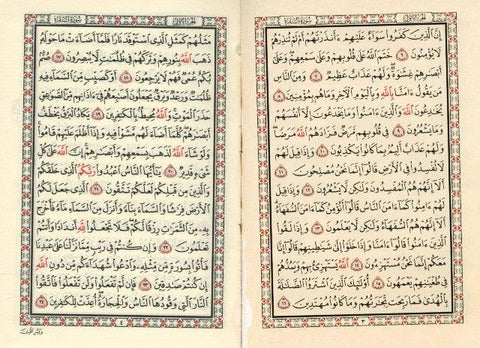 الجزء الأول سورة البقرة
إِنَّ ٱلَّذِينَ كَفَرُوا۟ سَوَآءٌ عَلَيْهِمْ ءَأَنذَرْتَهُمْ أَمْ لَمْ تُنذِرْهُمْ
لَا يُؤْمِنُونَ ٦ خَتَمَ ٱللَّهُ عَلَىٰ قُلُوبِهِمْ وَعَلَىٰ سَمْعِهِمْ وَعَلَىٰٓ
أَبْصَٰرِهِمْ غِشَٰوَةٌ وَلَهُمْ عَذَابٌ عَظِيمٌ ٧ وَمِنَ ٱلنَّاسِ
مَن يَقُولُ ءَامَنَّا بِٱللَّهِ وَبِٱلْيَوْمِ ٱلْءَاخِرِ وَمَا هُم بِمُؤْمِنِينَ ٨
يُخَٰدِعُونَ ٱللَّهَ وَٱلَّذِينَ ءَامَنُوا۟ وَمَا يَخْدَعُونَ إِلَّآ أَنفُسَهُمْ
وَمَا يَشْعُرُونَ ٩ فِى قُلُوبِهِم مَّرَضٌ فَزَادَهُمُ ٱللَّهُ مَرَضًا
وَلَهُمْ عَذَابٌ أَلِيمٌۢ بِمَا كَانُوا۟ يَكْذِبُونَ ١٠ وَإِذَا قِيلَ لَهُمْ
لَا تُفْسِدُوا۟ فِى ٱلْأَرْضِ قَالُوٓا۟ إِنَّمَا نَحْنُ مُصْلِحُونَ ١١
أَلَآ إِنَّهُمْ هُمُ ٱلْمُفْسِدُونَ وَلَٰكِن لَّا يَشْعُرُونَ ١٢ وَإِذَا قِيلَ
لَهُمْ ءَامِنُوا۟ كَمَآ ءَامَنَ ٱلنَّاسُ قَالُوٓا۟ أَنُؤْمِنُ كَمَآ ءَامَنَ ٱلسُّفَهَآءُ
أَلَآ إِنَّهُمْ هُمُ ٱلسُّفَهَآءُ وَلَٰكِن لَّا يَعْلَمُونَ ١٣ وَإِذَا لَقُوا۟
ٱلَّذِينَ ءَامَنُوا۟ قَالُوٓا۟ ءَامَنَّا وَإِذَا خَلَوْا۟ إِلَىٰ شَيَٰطِينِهِمْ قَالُوٓا۟ إِنَّا
مَعَكُمْ إِنَّمَا نَحْنُ مُسْتَهْزِءُونَ ١٤ ٱللَّهُ يَسْتَهْزِئُ بِهِمْ وَيَمُدُّهُمْ
فِى طُغْيَٰنِهِمْ يَعْمَهُونَ ١٥ أُو۟لَٰٓئِكَ ٱلَّذِينَ ٱشْتَرَوُا۟ ٱلضَّلَٰلَةَ
بِٱلْهُدَىٰ فَمَا رَبِحَت تِّجَٰرَتُهُمْ وَمَا كَانُوا۟ مُهْتَدِينَ ١٦
٣
الجزء الأول سورة البقرة
مَثَلُهُمْ كَمَثَلِ ٱلَّذِى ٱسْتَوْقَدَ نَارًا فَلَمَّآ أَضَآءَتْ مَا حَوْلَهُۥ
ذَهَبَ ٱللَّهُ بِنُورِهِمْ وَتَرَكَهُمْ فِى ظُلُمَٰتٍ لَّا يُبْصِرُونَ ١٧ صُمٌّۢ
بُكْمٌ عُمْىٌ فَهُمْ لَا يَرْجِعُونَ ١٨ أَوْ كَصَيِّبٍ مِّنَ ٱلسَّمَآءِ فِيهِ
ظُلُمَٰتٌ وَرَعْدٌ وَبَرْقٌ يَجْعَلُونَ أَصَٰبِعَهُمْ فِىٓ ءَاذَانِهِم مِّنَ ٱلصَّوَٰعِقِ
حَذَرَ ٱلْمَوْتِ وَٱللَّهُ مُحِيطٌۢ بِٱلْكَٰفِرِينَ ١٩ يَكَادُ ٱلْبَرْقُ يَخْطَفُ
أَبْصَٰرَهُمْ كُلَّمَآ أَضَآءَ لَهُم مَّشَوْا۟ فِيهِ وَإِذَآ أَظْلَمَ عَلَيْهِمْ قَامُوا۟
وَلَوْ شَآءَ ٱللَّهُ لَذَهَبَ بِسَمْعِهِمْ وَأَبْصَٰرِهِمْ إِنَّ ٱللَّهَ عَلَىٰ كُلِّ
شَىْءٍ قَدِيرٌ ٢٠ يَٰٓأَيُّهَا ٱلنَّاسُ ٱعْبُدُوا۟ رَبَّكُمُ ٱلَّذِى خَلَقَكُمْ
وَٱلَّذِينَ مِن قَبْلِكُمْ لَعَلَّكُمْ تَتَّقُونَ ٢١ ٱلَّذِى جَعَلَ لَكُمُ
ٱلْأَرْضَ فِرَٰشًا وَٱلسَّمَآءَ بِنَآءً وَأَنزَلَ مِنَ ٱلسَّمَآءِ مَآءً فَأَخْرَجَ
بِهِۦ مِنَ ٱلثَّمَرَٰتِ رِزْقًا لَّكُمْ فَلَا تَجْعَلُوا۟ لِلَّهِ أَندَادًا وَأَنتُمْ
تَعْلَمُونَ ٢٢ وَإِن كُنتُمْ فِى رَيْبٍ مِّمَّا نَزَّلْنَا عَلَىٰ عَبْدِنَا
فَأْتُوا۟ بِسُورَةٍ مِّن مِّثْلِهِۦ وَٱدْعُوا۟ شُهَدَآءَكُم مِّن دُونِ ٱللَّهِ
إِن كُنتُمْ صَٰدِقِينَ ٢٣ فَإِن لَّمْ تَفْعَلُوا۟ وَلَن تَفْعَلُوا۟ فَٱتَّقُوا۟
ٱلنَّارَ ٱلَّتِى وَقُودُهَا ٱلنَّاسُ وَٱلْحِجَارَةُ أُعِدَّتْ لِلْكَٰفِرِينَ ٢٤
٤